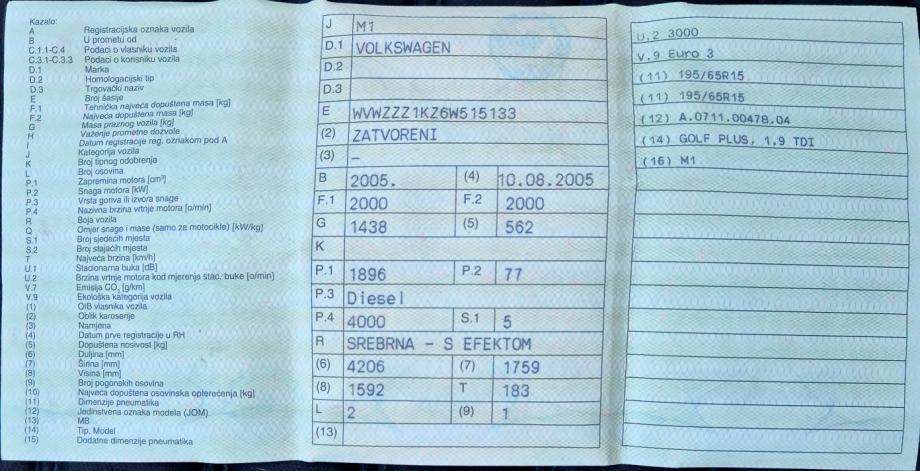 Kazalo:
A Registracijska oznaka vozila
B U prometu od
C.1.1-C.4 Podaci o vlasniku vozila
C.3.1-C.3.3 Podaci o korisniku vozila
D.1 Marka
D.2 Homologacijski tip
D.3 Trgovački naziv
E Broj šasije
F.1 Tehnička najveća dopuštena masa [kg]
F.2 Najveća dopuštena masa [kg]
G Masa praznog vozila [kg]
H Važenje prometne dozvole
I Datum registracije reg. oznakom pod A
J Kategorija vozila
K Broj tipnog odobrenja
L Broj osovina
P.1 Zapremina motora [cm³]
P.2 Snaga motora [kW]
P.3 Vrsta goriva ili izvora snage
P.4 Nazivna brzina vrtnje motora [o/min]
R Boja vozila
Q Omjer snage i mase (samo za motocikle) [kW/kg]
S.1 Broj sjedećih mjesta
S.2 Broj stajaćih mjesta
T Najveća brzina [km/h]
U.1 Stacionarna buka [dB]
U.2 Brzina vrtnje motora kod mjerenja stac. buke [o/min]
V.7 Emisija CO₂ [g/km]
V.9 Ekološka kategorija vozila
(1) OIB vlasnika vozila
(2) Oblik karoserije
(3) Namjena
(4) Datum prve registracije u RH
(5) Dopuštena nosivost [kg]
(6) Duljina [mm]
(7) Širina [mm]
(8) Visina [mm]
(9) Broj pogonskih osovina
(10) Najveća dopuštena osovinska opterećenja [kg]
(11) Dimenzije pneumatika
(12) Jedinstvena oznaka modela (JOM)
(13) MB
(14) Tip, Model
(15) Dodatne dimenzije pneumatika
J M1
D.1 VOLKSWAGEN
D.2
D.3
E WVWZZZ1KZ6W515133
(2) ZATVORENI
(3) –
B 2005. (4) 10.08.2005
F.1 2000 F.2 2000
G 1438 (5) 562
K
P.1 1896 P.2 77
P.3 Diesel
P.4 4000 S.1 5
R SREBRNA - S EFEKTOM
(6) 4206 (7) 1759
(8) 1592 T 183
L 2 (9) 1
(13)
U.2 3000
V.9 Euro 3
(11) 195/65R15
(11) 195/65R15
(12) A.0711.00478.04
(14) GOLF PLUS, 1.9 TDI
(16) M1